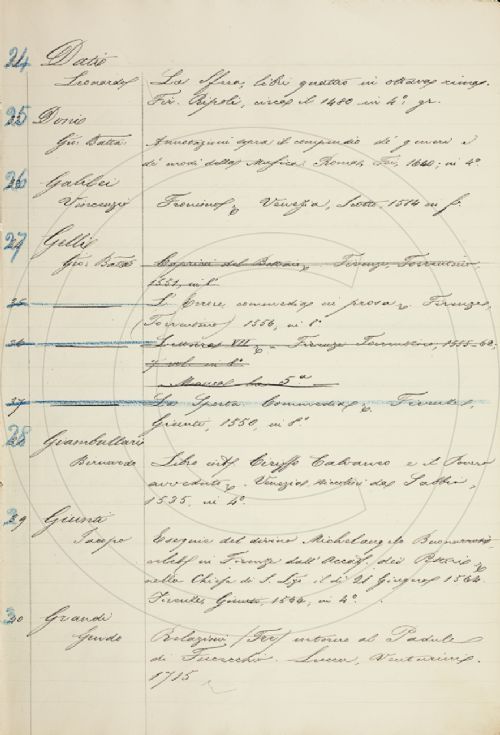 24 Datis
Leonardo La Sfera, libri quattro in ottava rima.
Fir. Ripoli, circa il 1480 in 4° gr.
25 Donis
Gio: Batta: Annotazioni sopra il compendio de' generi e
de' modi della Musica. Roma, Fei, 1640; in 4°.
26 Galilei
Vincenzo Fronimo, Venezia, Scotto, 1584 in f.
27 Gelli
Gio: Batta Capricci del Bottaio, Firenze, Torrentino,
1551, in 8°
35 La commedia in prosa, Firenze,
(Torrentino) 1556, in 8°
36 Letture VII, Firenze Torrentino,
vol. in 8°
Manca 5ª
37 La Sporta Commedia, Firenze,
Giunti, 1550, in 8°.
28 Giambullari
Bernardo Libro Ciriffo Calvaneo e il Povero
avveduto, Venezia
1535, in 4°.
29 Giunti
Jacopo Esequie del divino Michelangelo Buonarroti
in Firenze dall' Accad. dei
nella Chiesa di S. il dì 28 Giugno 1564.
Firenze, Giunti, 1564, in 4°.
30 Grandi
Guido Relazioni intorno al Padule
di Fucecchio. Lucca, Venturini.
1715